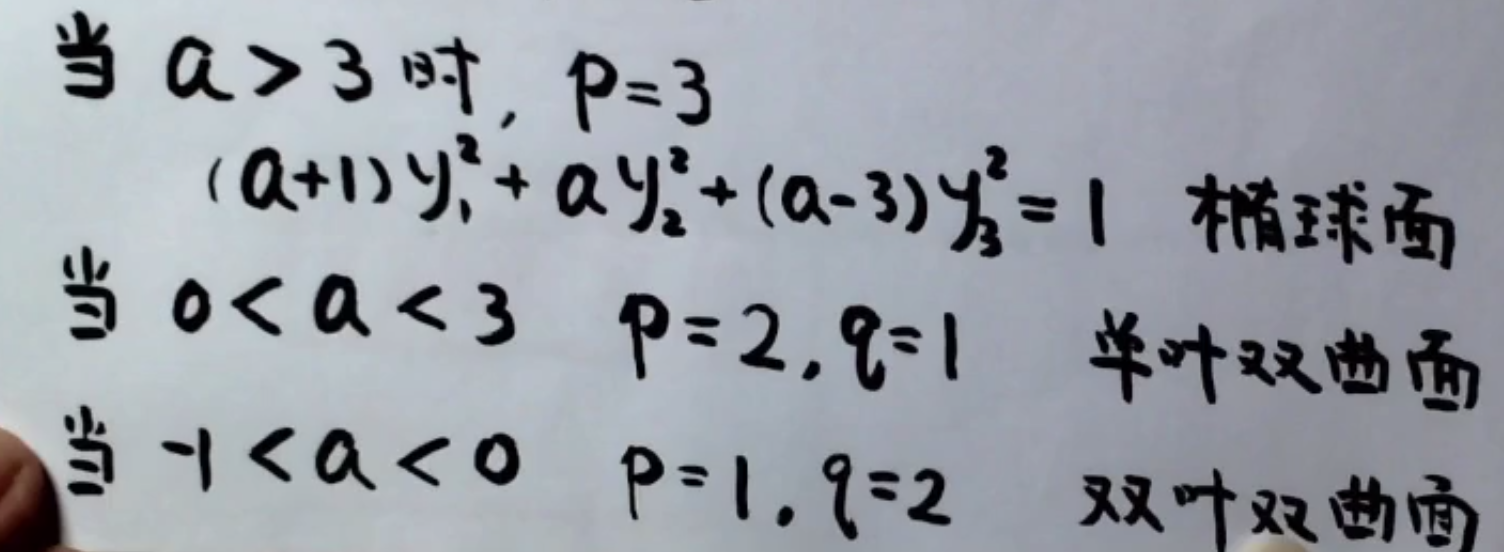 当 a > 3 时, p=3
(a+1)y₁²+ay₂²+(a-3)y₃²=1 椭球面
当 0<a<3 p=2,q=1 单叶双曲面
当 -1<a<0 p=1.q=2 双叶双曲面